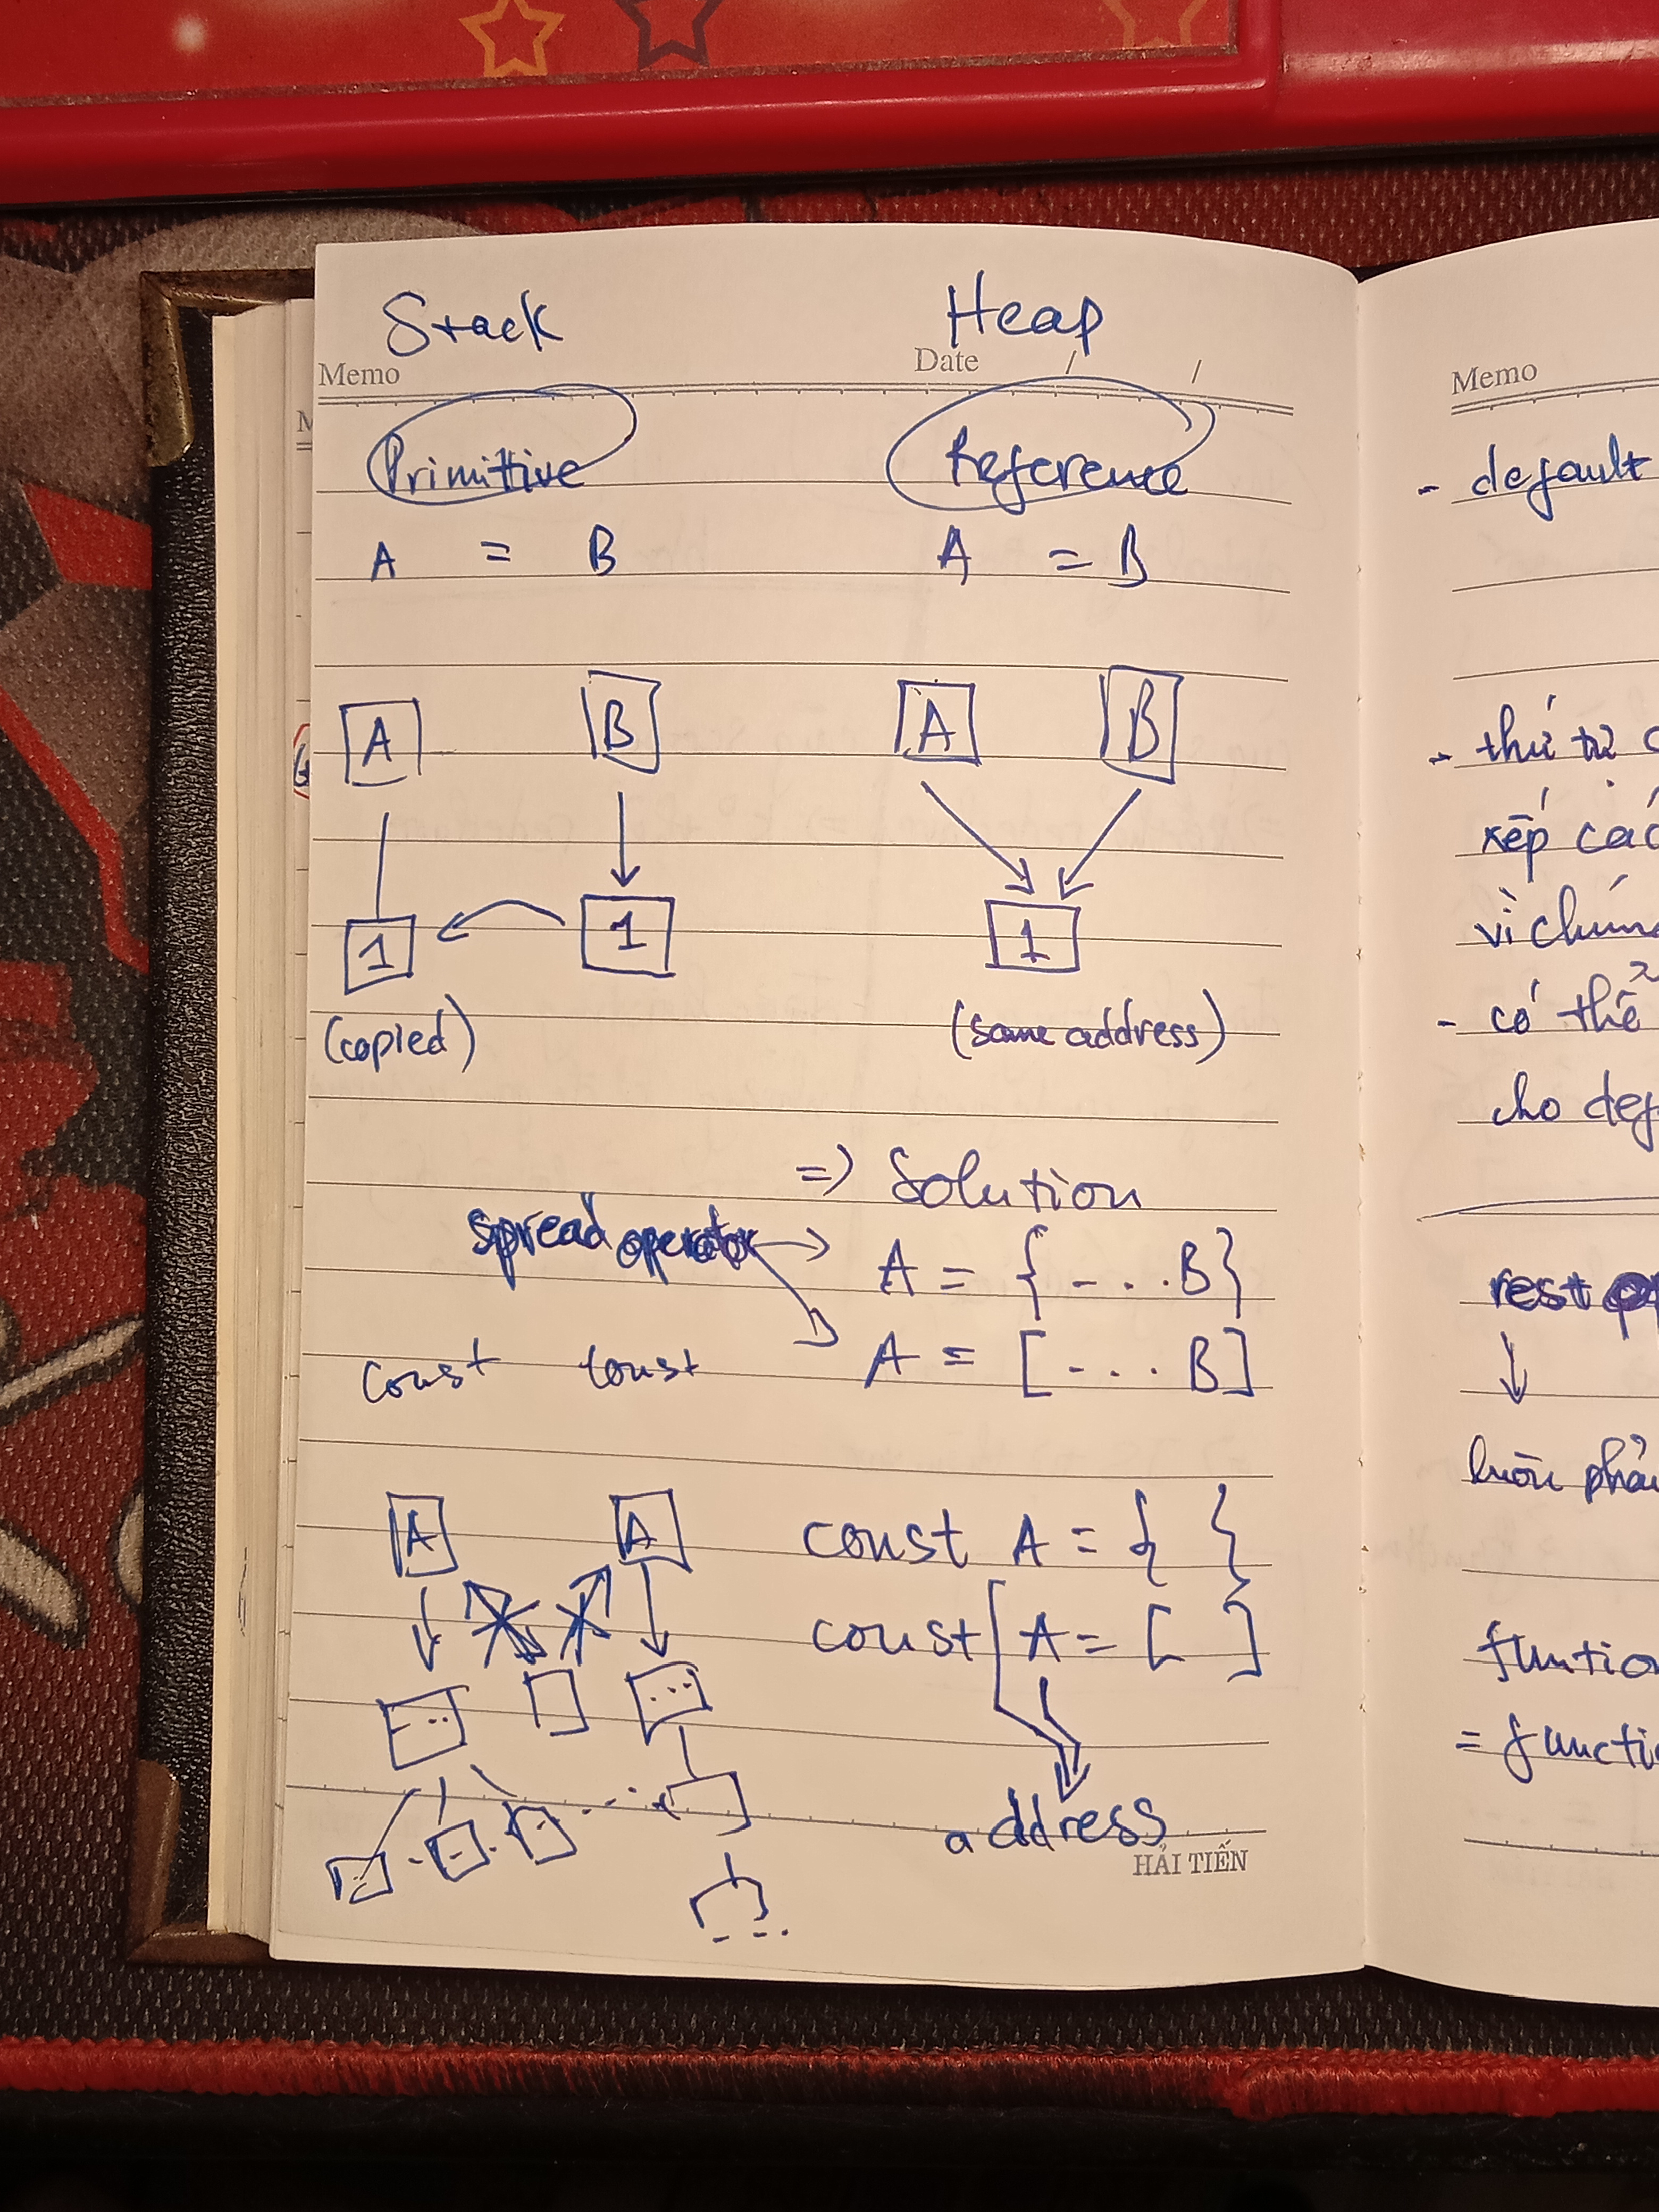 Stack Heap
Memo Date / /
Primittive Reference
A = B A = B
A B A B
1 1 1
(copied) (same address)
=> Solution
spread operator → A = {-...B}
A = [-...B]
const const
A A const A = { }
const A = [ ]
address
HẢI TIẾN
Memo
- default
- thứ tự
xếp các
vì chúng
- có thể
cho def
rest op
↓
luôn phải
funtion
= functi